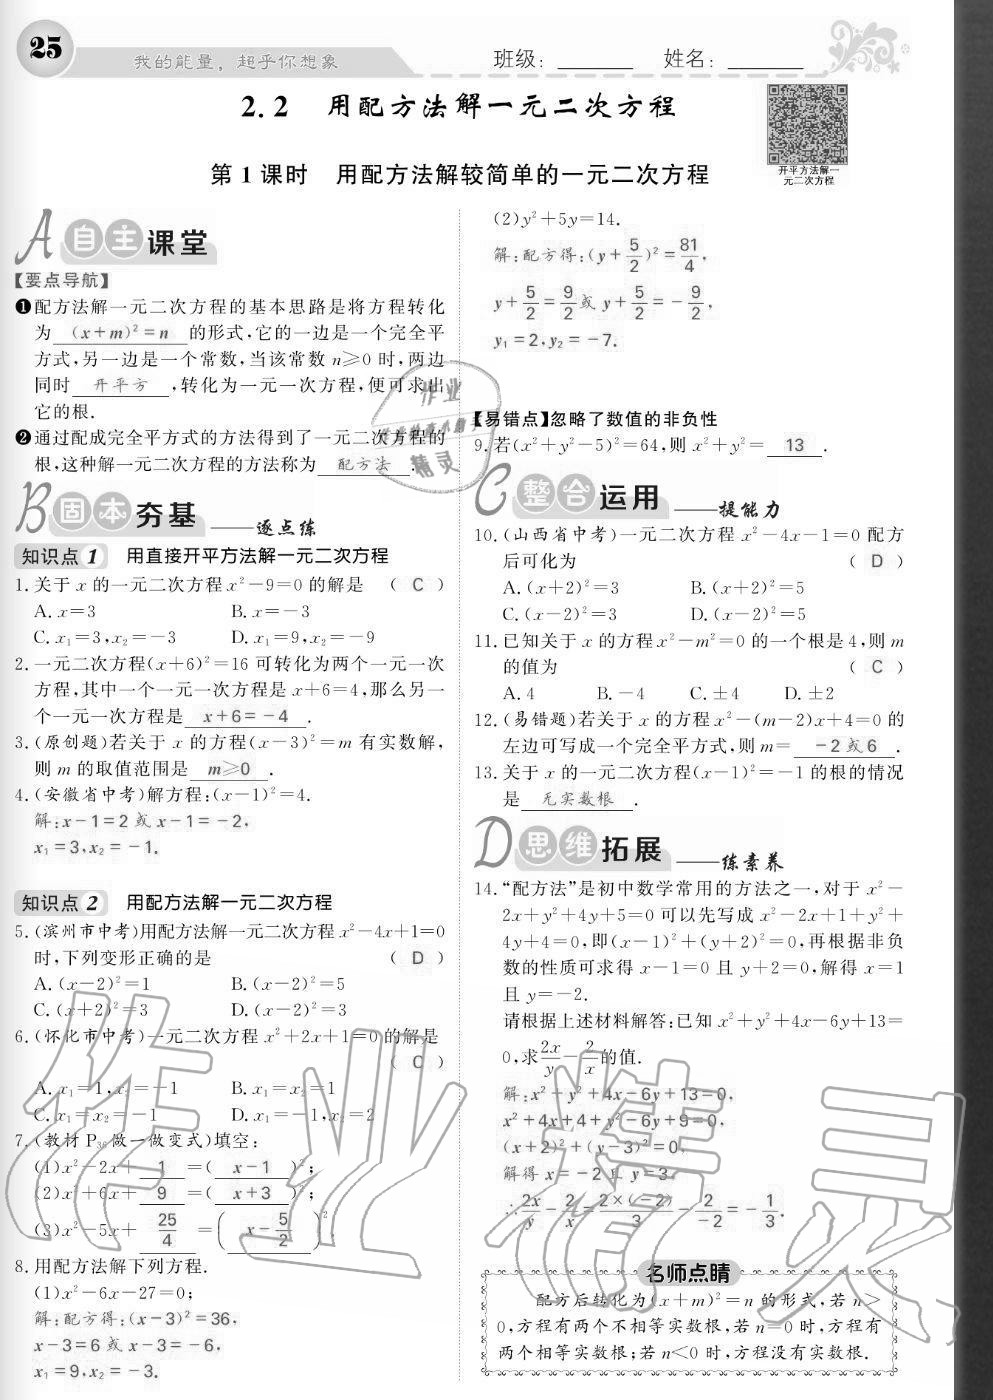 25
我的能量，超乎你想象
班级：________ 姓名：________
2.2 用配方法解一元二次方程
开平方法解一
元二次方程
第1课时 用配方法解较简单的一元二次方程
A 自主课堂
【要点导航】
❶配方法解一元二次方程的基本思路是将方程转化
为 (x+m)²=n 的形式,它的一边是一个完全平
方式,另一边是一个常数,当该常数 n≥0 时,两边
同时 开平方 ,转化为一元一次方程,便可求出
它的根.
❷通过配成完全平方式的方法得到了一元二次方程的
根,这种解一元二次方程的方法称为 配方法 .
B 固本夯基 ——逐点练
知识点1 用直接开平方法解一元二次方程
1.关于 x 的一元二次方程 x²-9=0 的解是 ( C )
A.x=3 B.x=-3
C.x₁=3,x₂=-3 D.x₁=9,x₂=-9
2.一元二次方程(x+6)²=16 可转化为两个一元一次
方程,其中一个一元一次方程是 x+6=4,那么另一
个一元一次方程是 x+6=-4 .
3.(原创题)若关于 x 的方程(x-3)²=m 有实数解,
则 m 的取值范围是 m≥0 .
4.(安徽省中考)解方程:(x-1)²=4.
解:x-1=2 或 x-1=-2,
x₁=3,x₂=-1.
知识点2 用配方法解一元二次方程
5.(滨州市中考)用配方法解一元二次方程 x²-4x+1=0
时,下列变形正确的是 ( D )
A.(x-2)²=1 B.(x-2)²=5
C.(x+2)²=3 D.(x-2)²=3
6.(怀化市中考)一元二次方程 x²+2x+1=0 的解是
( C )
A.x₁=1,x₂=-1 B.x₁=x₂=1
C.x₁=x₂=-1 D.x₁=-1,x₂=2
7.(教材 P₃₆ 做一做变式)填空:
(1)x²-2x+ 1 =( x-1 )²;
(2)x²+6x+ 9 =( x+3 )²;
(3)x²-5x+ 25/4 =( x-5/2 )².
8.用配方法解下列方程.
(1)x²-6x-27=0;
解:配方得:(x-3)²=36,
x-3=6 或 x-3=-6,
x₁=9,x₂=-3.
(2)y²+5y=14.
解:配方得:(y+5/2)²=81/4,
y+5/2=9/2 或 y+5/2=-9/2,
y₁=2,y₂=-7.
【易错点】忽略了数值的非负性
9.若(x²+y²-5)²=64,则 x²+y²= 13 .
C 整合运用 ——提能力
10.(山西省中考)一元二次方程 x²-4x-1=0 配方
后可化为 ( D )
A.(x+2)²=3 B.(x+2)²=5
C.(x-2)²=3 D.(x-2)²=5
11.已知关于 x 的方程 x²-m²=0 的一个根是 4,则 m
的值为 ( C )
A.4 B.-4 C.±4 D.±2
12.(易错题)若关于 x 的方程 x²-(m-2)x+4=0 的
左边可写成一个完全平方式,则 m= -2或6 .
13.关于 x 的一元二次方程(x-1)²=-1 的根的情况
是 无实数根 .
D 思维拓展 ——练素养
14.“配方法”是初中数学常用的方法之一,对于 x²-
2x+y²+4y+5=0 可以先写成 x²-2x+1+y²+
4y+4=0,即(x-1)²+(y+2)²=0,再根据非负
数的性质可求得 x-1=0 且 y+2=0,解得 x=1
且 y=-2.
请根据上述材料解答:已知 x²+y²+4x-6y+13=
0,求2x/y-2/x的值.
解:x²+y²+4x-6y+13=0,
x²+4x+4+y²-6y+9=0,
(x+2)²+(y-3)²=0,
解得 x=-2 且 y=3.
∴2x/y-2/x=2×(-2)/3-2/-2=-1/3.
名师点睛
配方后转化为(x+m)²=n 的形式,若 n>
0,方程有两个不相等实数根,若 n=0 时,方程有
两个相等实数根;若 n<0 时,方程没有实数根.
作业
精灵
作业精灵